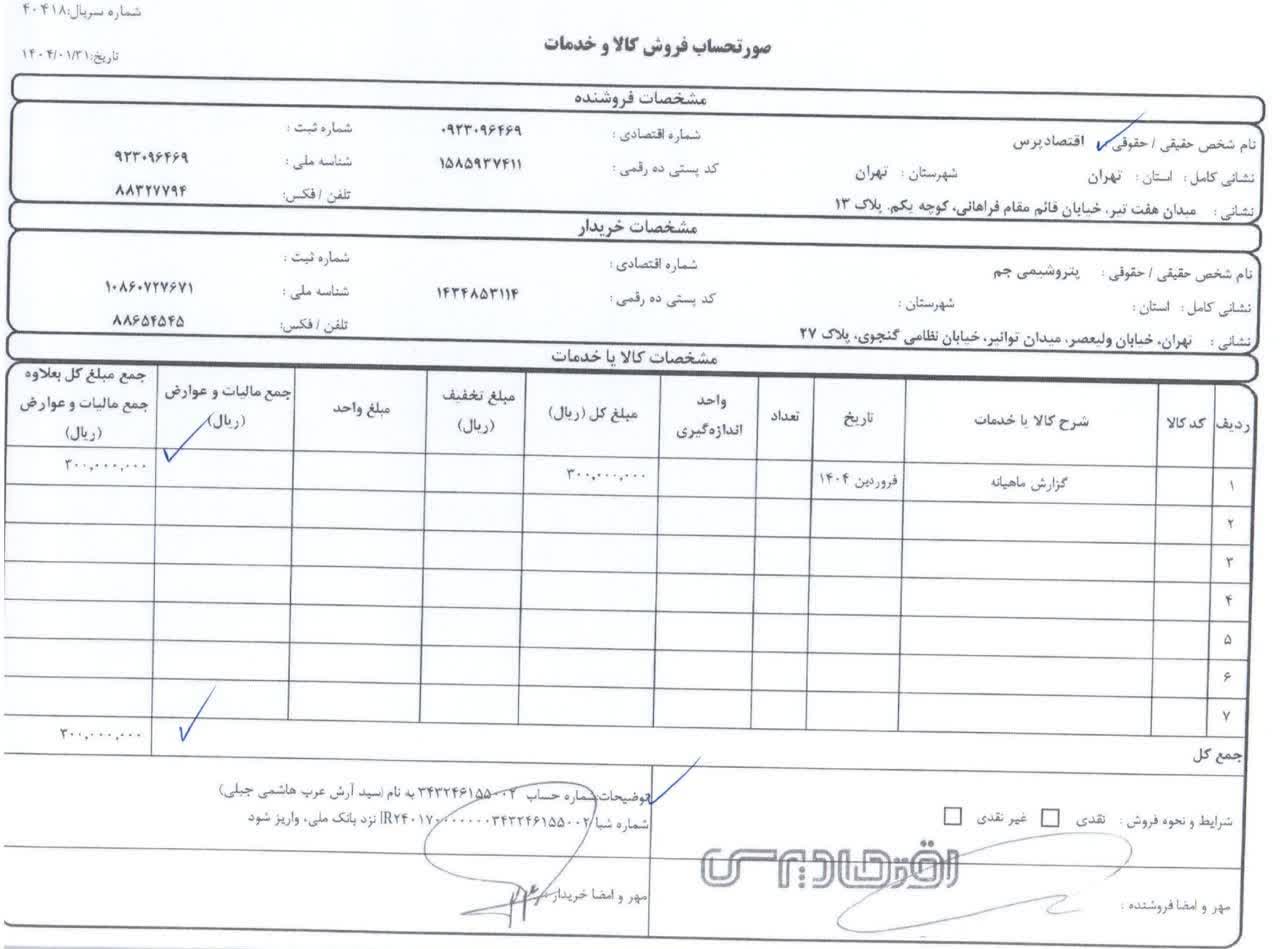 شماره سریال:۴۰۴۱۸
صورتحساب فروش کالا و خدمات
تاریخ:۱۴۰۴/۰۱/۳۱
مشخصات فروشنده
نام شخص حقیقی / حقوقی : اقتصادپرس شماره اقتصادی : ۰۹۲۳۰۹۶۴۶۹ شماره ثبت :
نشانی کامل : استان : تهران شهرستان : تهران کد پستی ده رقمی : ۱۵۸۵۹۳۷۴۱۱ شناسه ملی : ۹۲۳۰۹۶۴۶۹
نشانی : میدان هفت تیر، خیابان قائم مقام فراهانی، کوچه یکم. پلاک ۱۳ تلفن / فکس: ۸۸۳۲۷۷۹۴
مشخصات خریدار
نام شخص حقیقی / حقوقی : پتروشیمی جم شماره اقتصادی : شماره ثبت :
نشانی کامل : استان : شهرستان : کد پستی ده رقمی : ۱۴۳۴۸۵۳۱۱۴ شناسه ملی : ۱۰۸۶۰۷۲۷۶۷۱
نشانی : تهران، خیابان ولیعصر، میدان توانیر، خیابان نظامی گنجوی، پلاک ۲۷ تلفن / فکس: ۸۸۶۵۴۵۴۵
مشخصات کالا یا خدمات
ردیف کد کالا شرح کالا یا خدمات تاریخ تعداد واحد اندازه‌گیری مبلغ کل (ریال) مبلغ تخفیف (ریال) مبلغ واحد جمع مالیات و عوارض (ریال) جمع مبلغ کل بعلاوه جمع مالیات و عوارض (ریال)
۱ گزارش ماهیانه فروردین ۱۴۰۴ ۳۰۰,۰۰۰,۰۰۰ ۳۰۰,۰۰۰,۰۰۰
۲
۳
۴
۵
۶
۷
جمع کل ۳۰۰,۰۰۰,۰۰۰
شرایط و نحوه فروش : نقدی غیر نقدی
توضیحات:شماره حساب ۳۴۳۲۴۶۱۵۵۰۰۲ به نام (سید آرش عرب هاشمی جبلی)
شماره شبا IR۲۴۰۱۷۰۰۰۰۰۰۰۳۴۳۲۴۶۱۵۵۰۰۲ نزد بانک ملی، واریز شود
اقتصادپرس
مهر و امضا فروشنده :
مهر و امضا خریدار :